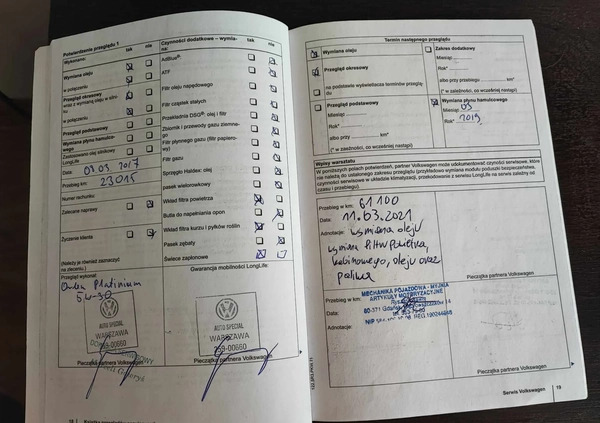 Potwierdzenie przeglądu 1
Wykonano: tak nie
Wymiana oleju
w połączeniu
Przegląd okresowy
wraz z wymianą oleju w silniku
w połączeniu
Przegląd podstawowy
Wymiana płynu hamulcowego
Zastosowano olej silnikowy LongLife
Data: 03 2017
Przebieg km: 23015
Numer rachunku:
Zalecane naprawy
Życzenia klienta
(Należy je również zaznaczyć na zleceniu.)
Przegląd wykonał:
Platinium
5W-30
AUTO SPECIAL
WARSZAWA
00660
Pieczątka partnera Volkswagen
Czynności dodatkowe – wymiana:
tak nie
AdBlue®
ATF
Filtr oleju napędowego
Filtr cząstek stałych
Przekładnia DSG®: olej i filtr
Zbiornik i przewody gazu ziemnego
Filtr płynnego gazu (filtr papierowy)
Filtr gazu
Sprzęgło Haldex: olej
pasek wielorowkowy
Wkład filtra powietrza
Butla do napełniania opon
Wkład filtra kurzu i pyłków roślin
Pasek zębaty
Świece zapłonowe
Gwarancja mobilności LongLife:
AUTO SPECIAL
WARSZAWA
259-00660
Pieczątka partnera Volkswagen
Termin następnego przeglądu
Wymiana oleju
Przegląd okresowy
na podstawie wyświetlacza terminów przeglądu
Przegląd podstawowy
Miesiąc
Rok*
albo przy km*
(* w zależności, co wcześniej nastąpi)
Zakres dodatkowy
Miesiąc
Rok*
albo przy przebiegu km*
(* w zależności, co wcześniej nastąpi)
Wymiana płynu hamulcowego
Miesiąc 03
Rok* 2019
Wpisy warsztatu
W poniższych polach potwierdzeń, partner Volkswagen może udokumentować czynności serwisowe, które
nie należą do ustalonego zakresu przeglądu (przykładowo wymiana modułu poduszki bezpieczeństwa,
czynności serwisowe w układzie klimatyzacji, przekodowanie z serwisu LongLife na serwis zależny od
czasu i przebiegu).
Przebieg w km: 61100
Data: 11.03.2021
Adnotacje: wymiana oleju
wymiana filtru powietrza,
kabinowego, oleju oraz
paliwa
Pieczątka partnera Volkswagen
Przebieg w km:
MECHANIKA POJAZDOWA - MYJNIA
ARTYKUŁY MOTORYZACYJNE
Data:
80-371 Gdańsk
Adnotacje:
NIP
REG
Pieczątka partnera Volkswagen
Serwis Volkswagen 19